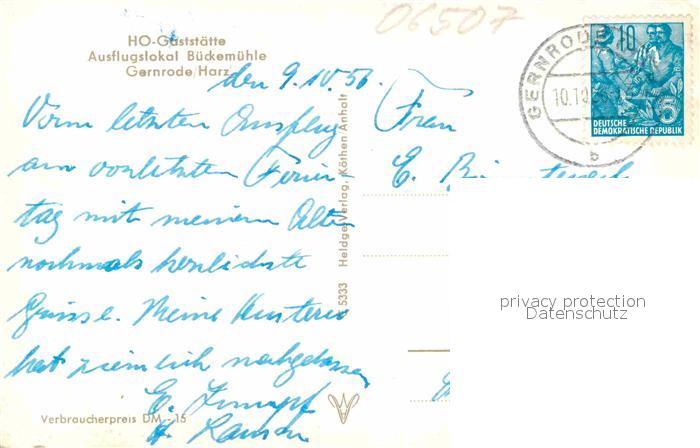 06507
HO-Gaststätte
Ausflugslokal Bückemühle
Gernrode/Harz
den 9.10.56.
Vom letzten Ausflug
am vorletzten Ferien-
tag mit meinem Alten
nochmals herzlichste
Grüsse. Meine Husterei
hat ziemlich nachgelassen
E.
Verbraucherpreis DM -.15
5333 Heldge-Verlag, Köthen-Anhalt
GERNRODE
10.10.
b
10
5
DEUTSCHE
DEMOKRATISCHE REPUBLIK
Frau
E.
privacy protection
Datenschutz